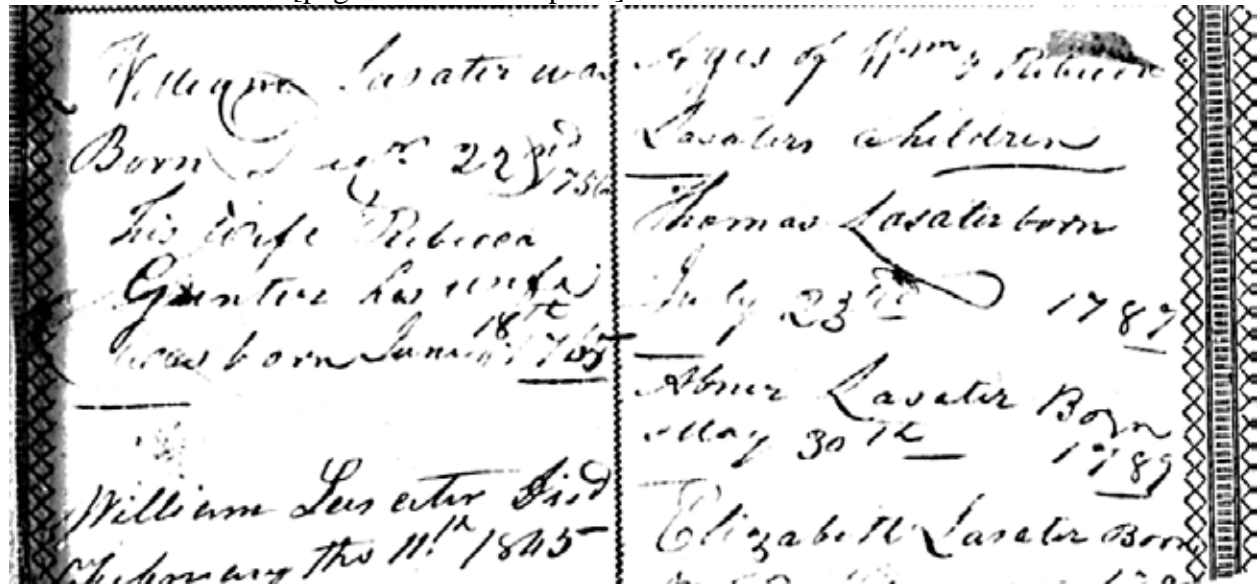 William Lasater was
Born 22nd
1756
his Wife Rebecca
Gunter his wife
18th
was born 1765
William Lasater Died
February the 11th 1845
Ages of Wm & Rebecca
Lasaters children
Thomas Lasater born
July 23rd 1787
Abner Lasater Born
May 30th 1789
Elizabeth Lasater Born